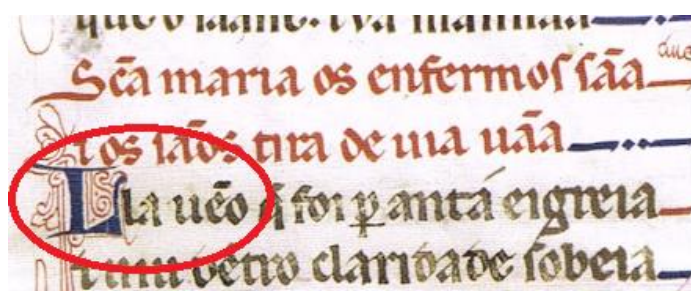 Scã maria os enfermos sãa
τ os sãos tira de uia uãa
Lla uẽo q̃ foi p̱ anta eigreia
τ uiu dẽtro claridade sobeia